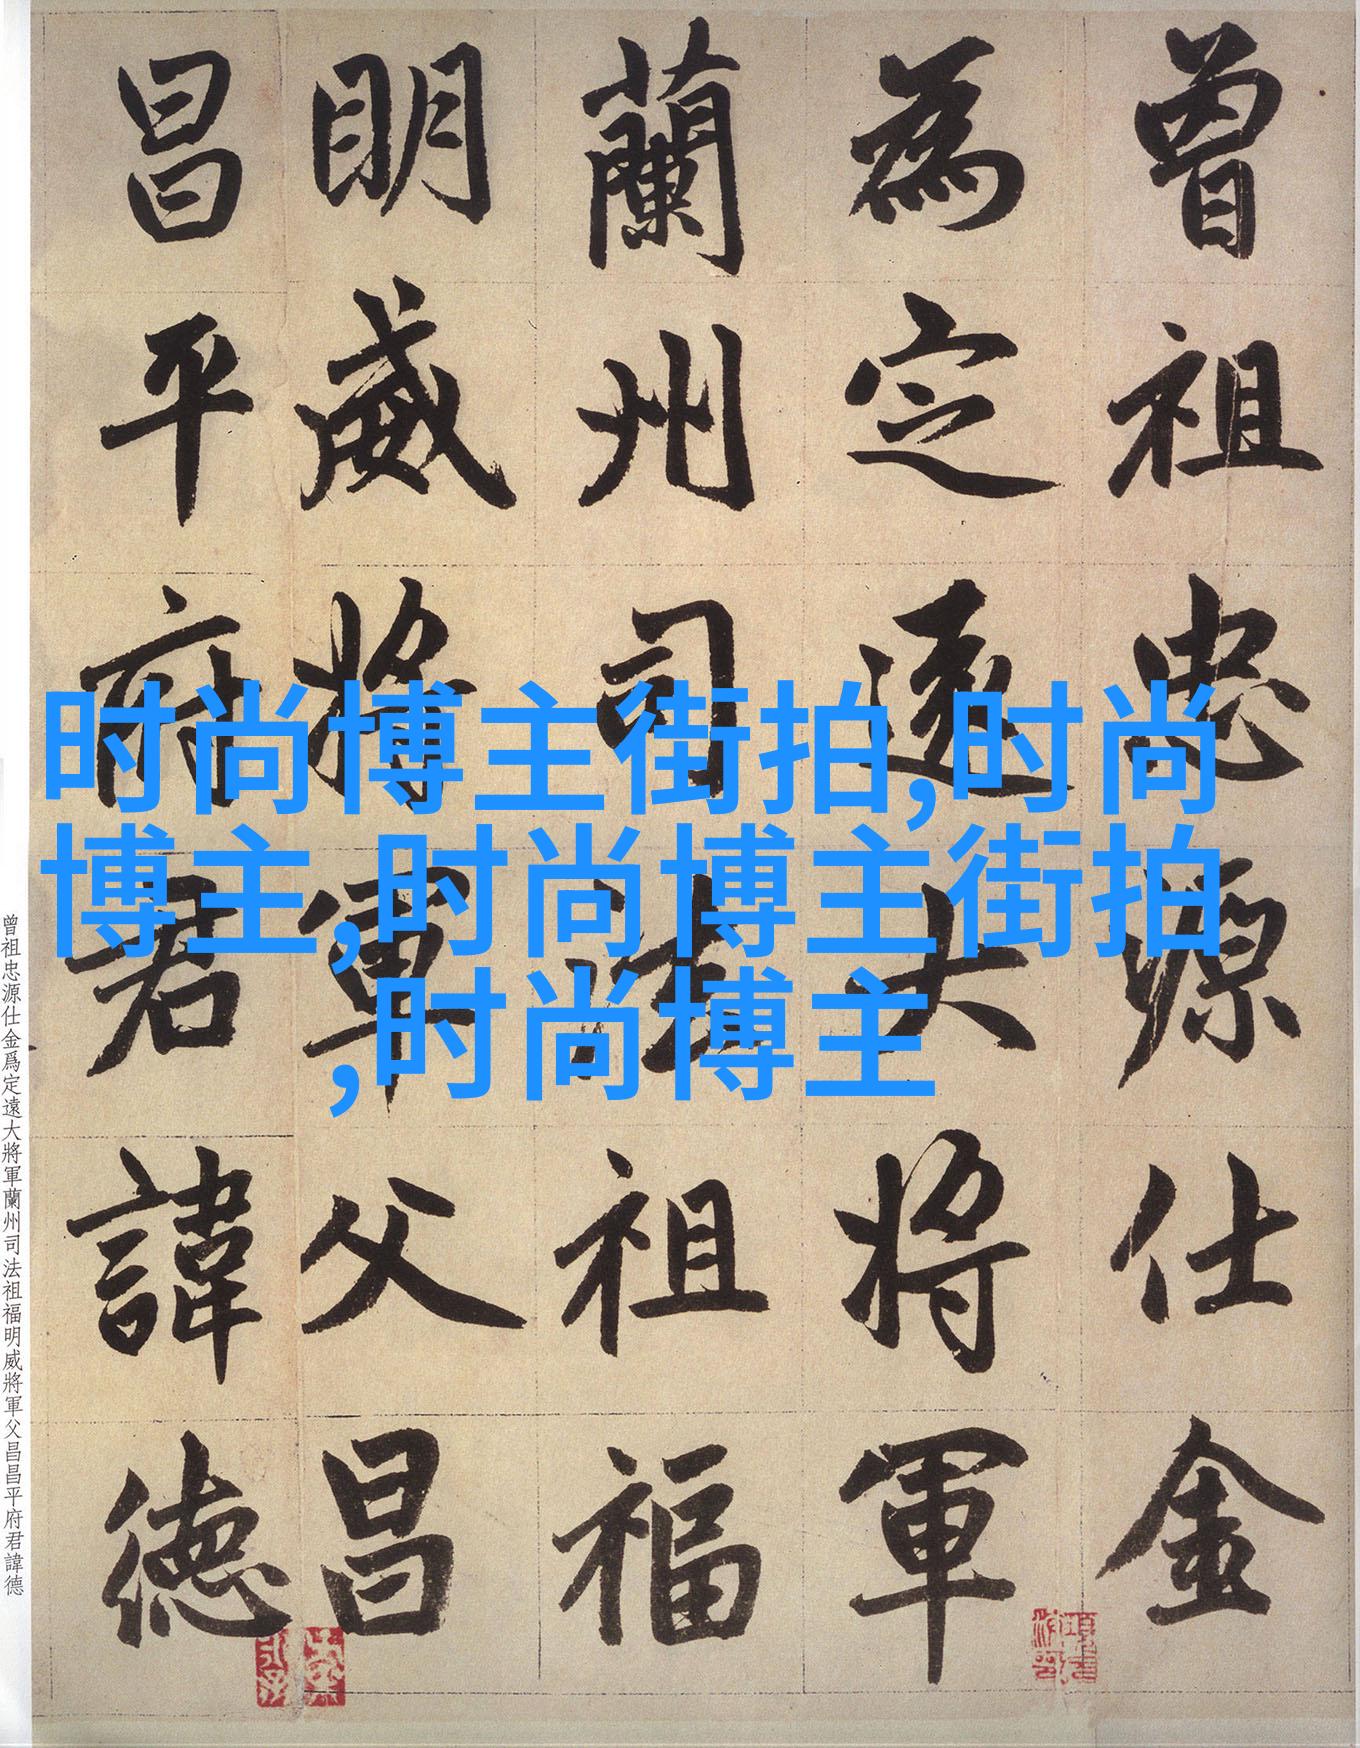 曾祖忠源仕金
為定遠大将軍
蘭州司法祖福
明威将軍父昌
昌平府君諱德
时尚博主街拍,时尚
博主,时尚博主街拍
,时尚博主
曾祖忠源仕金爲定遠大將軍蘭州司法祖福明威將軍父昌昌平府君諱德